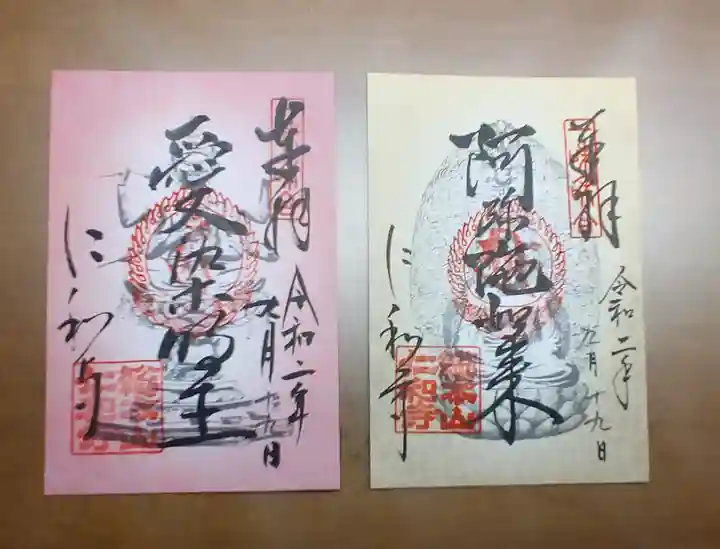 奉拝
令和二年
九月廿九日
愛染明王
仁和寺
総本山
仁和寺
奉拝
令和二年
九月廿九日
阿弥陀如来
仁和寺
総本山
仁和寺